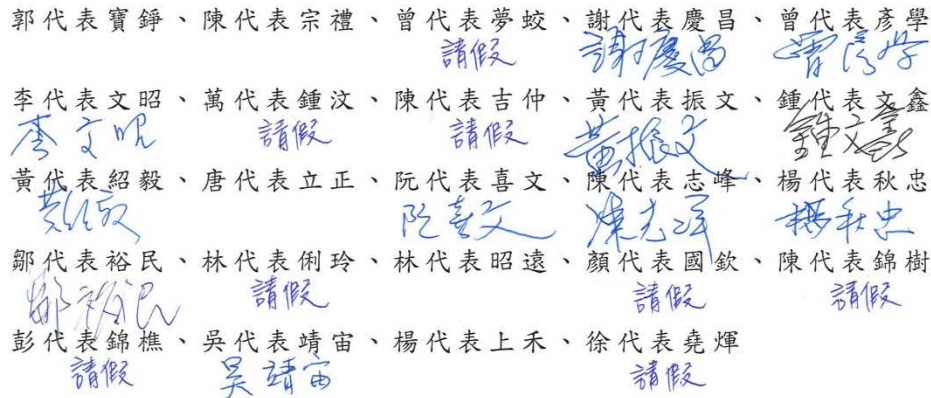 郭代表寶錚、陳代表宗禮、曾代表夢蛟、謝代表慶昌、曾代表彥學
請假 謝慶昌 曾彥学
李代表文昭、萬代表鍾汶、陳代表吉仲、黃代表振文、鍾代表文鑫
李文昭 請假 請假 黃振文 鍾文鑫
黃代表紹毅、唐代表立正、阮代表喜文、陳代表志峰、楊代表秋忠
黃紹毅 阮喜文 陳志峰 楊秋忠
鄒代表裕民、林代表俐玲、林代表昭遠、顏代表國欽、陳代表錦樹
鄒裕民 請假 請假 請假
彭代表錦樵、吳代表靖宙、楊代表上禾、徐代表堯煇
請假 吳靖宙 請假